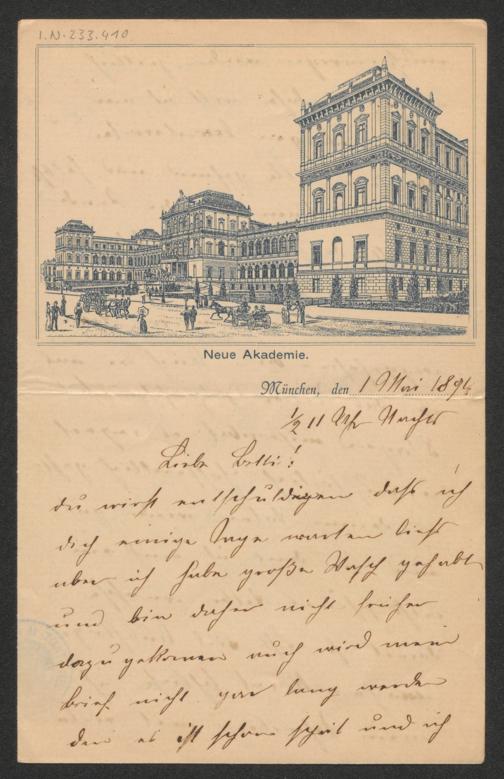 I.N.233.410
Neue Akademie.
München, den 1 Mai 1894
1/2 11 Uhr Nachts
Liebe Betti!
du wirst entschuldigen dass ich
dich einige Tage warten liess
aber ich habe große Wasch gehabt
und bin daher nicht früher
dazu gekomen auch wird mein
brief nicht gar lang werden
den es ist schon spät und ich